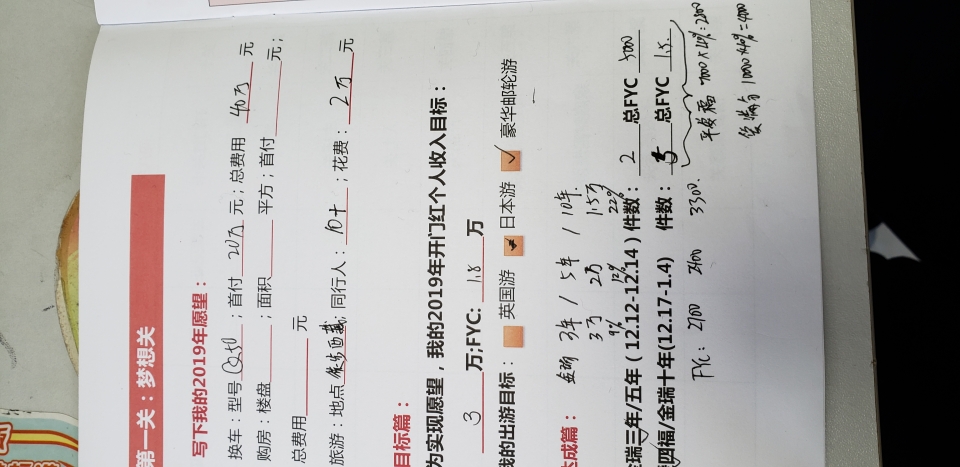 第一关：梦想关
写下我的2019年愿望：
换车：型号 Q50；首付 20万 元；总费用 40万 元
购房：楼盘；面积 平方；首付 元；
总费用 元
旅游：地点；同行人：10+；花费：2万 元
目标篇：
为实现愿望，我的2019年开门红个人收入目标：
3 万;FYC: 1.8 万
我的出游目标： 英国游 日本游 ✓ 豪华邮轮游
达成篇： 金瑞 3年 / 5年 / 10年.
3万 2万 1.5万
9% 12% 22%
金瑞三年/五年（12.12-12.14）件数：2 总FYC 5000
四福/金瑞十年(12.17-1.4) 件数：5 总FYC 1.5.
FYC: 2700 2400 3300.
平安福 7000×40%=2800
10000×40%=4000